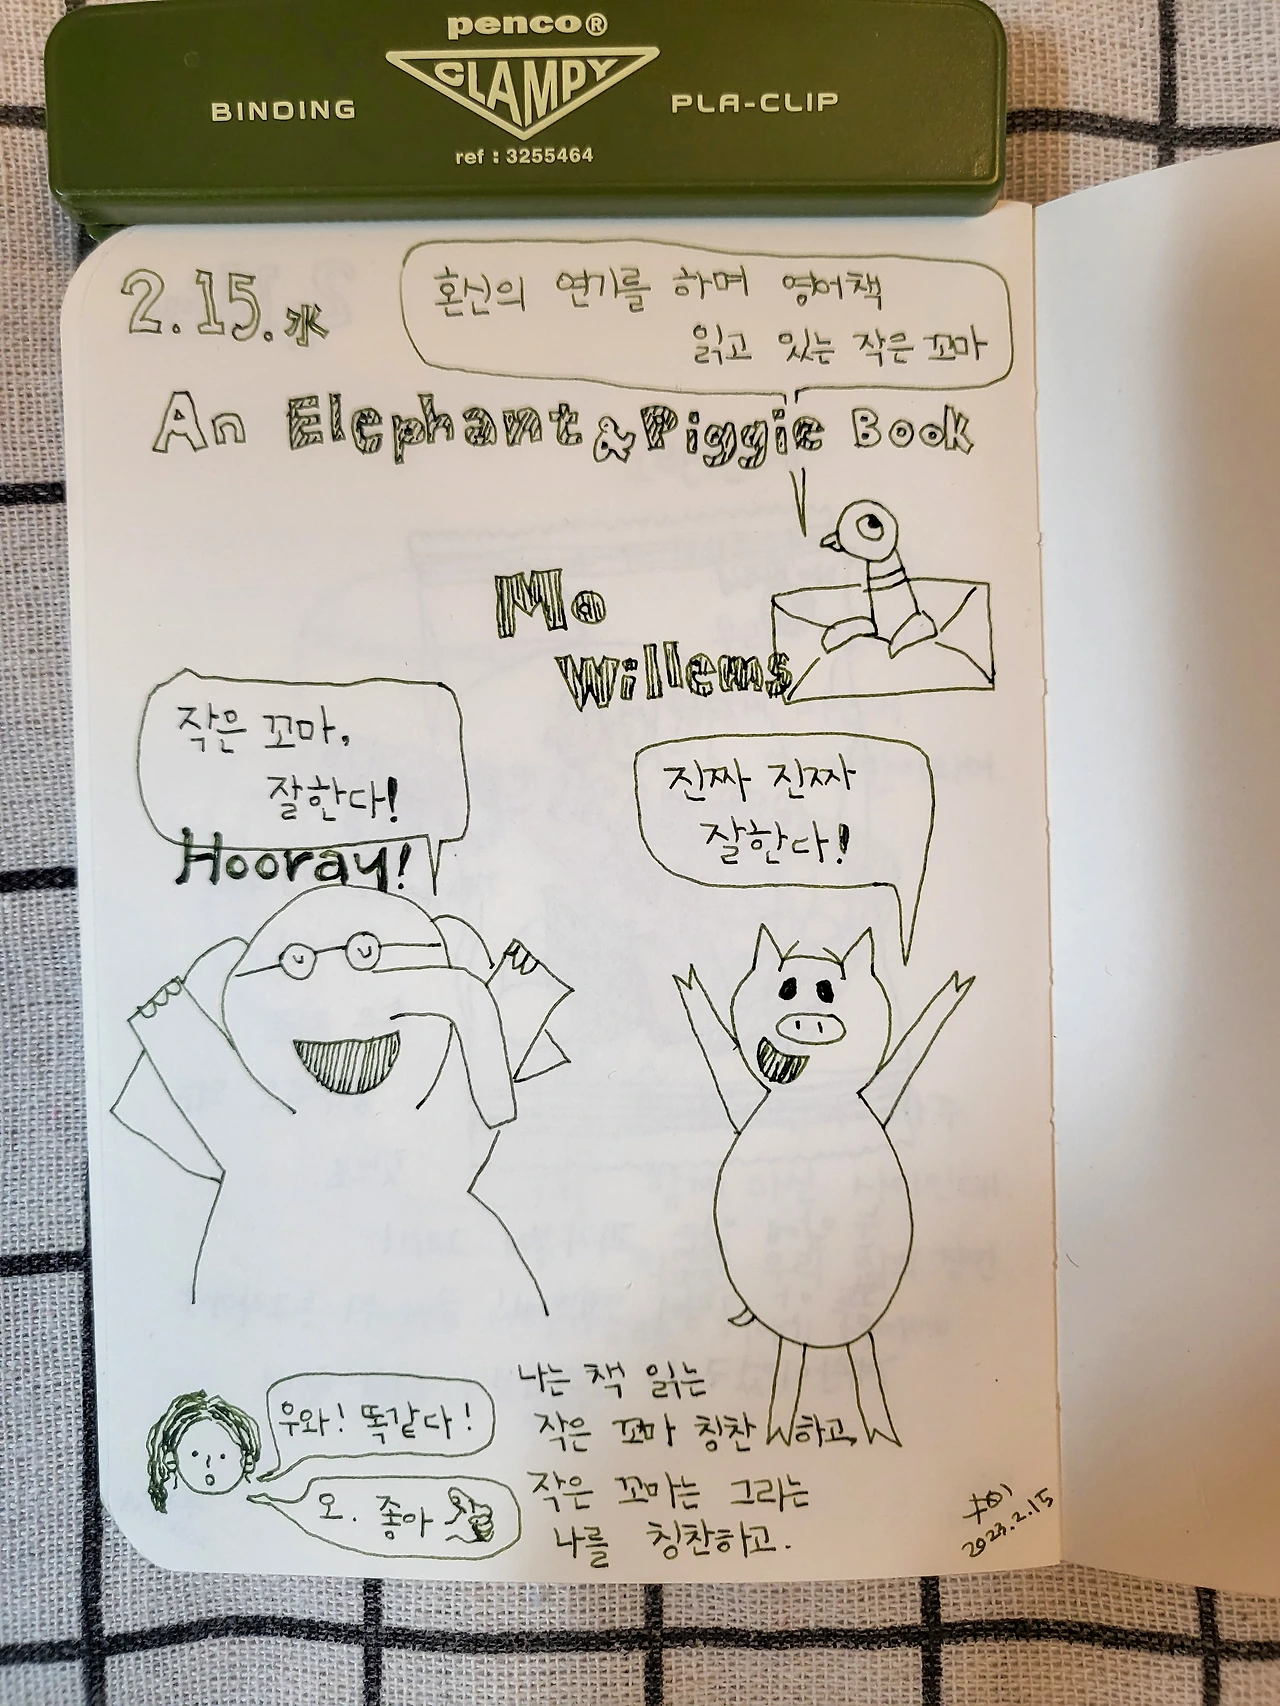 penco®
CLAMPY
BINDING
PLA-CLIP
ref : 3255464
2.15.水
혼신의 연기를 하며 영어책
읽고 있는 작은 꼬마
An Elephant & Piggie Book
Mo
Willems
작은 꼬마,
잘한다!
Hooray!
진짜 진짜
잘한다!
우와! 똑같다!
오. 좋아
나는 책 읽는
작은 꼬마 칭찬하고,
작은 꼬마는 그리는
나를 칭찬하고.
2023.2.15